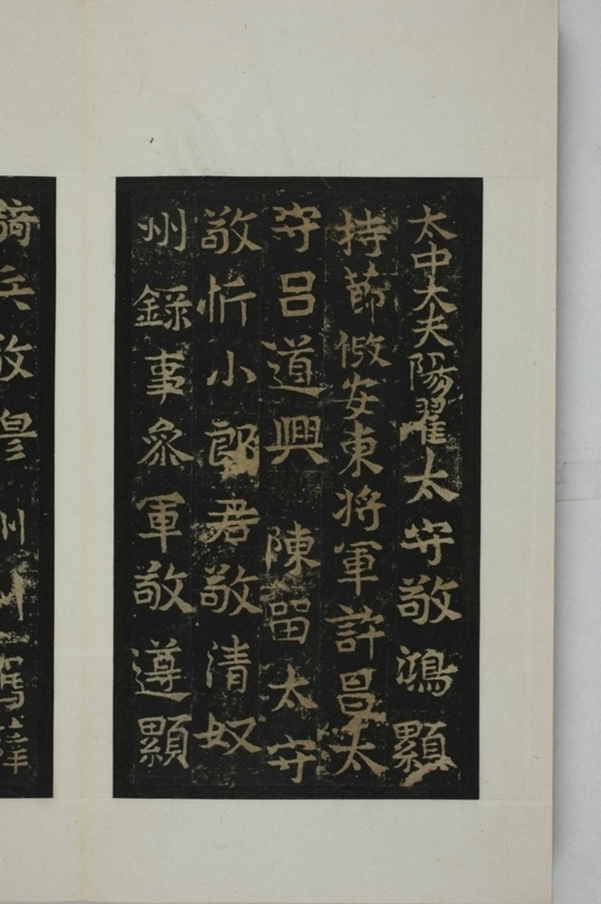 太中大夫陽翟太守敬鴻顯
持節倣安東将軍許昌太
守呂道興 陳留太守
敬忻小郎君敬清奴
州錄事叅軍敬遵顯
騎兵敬